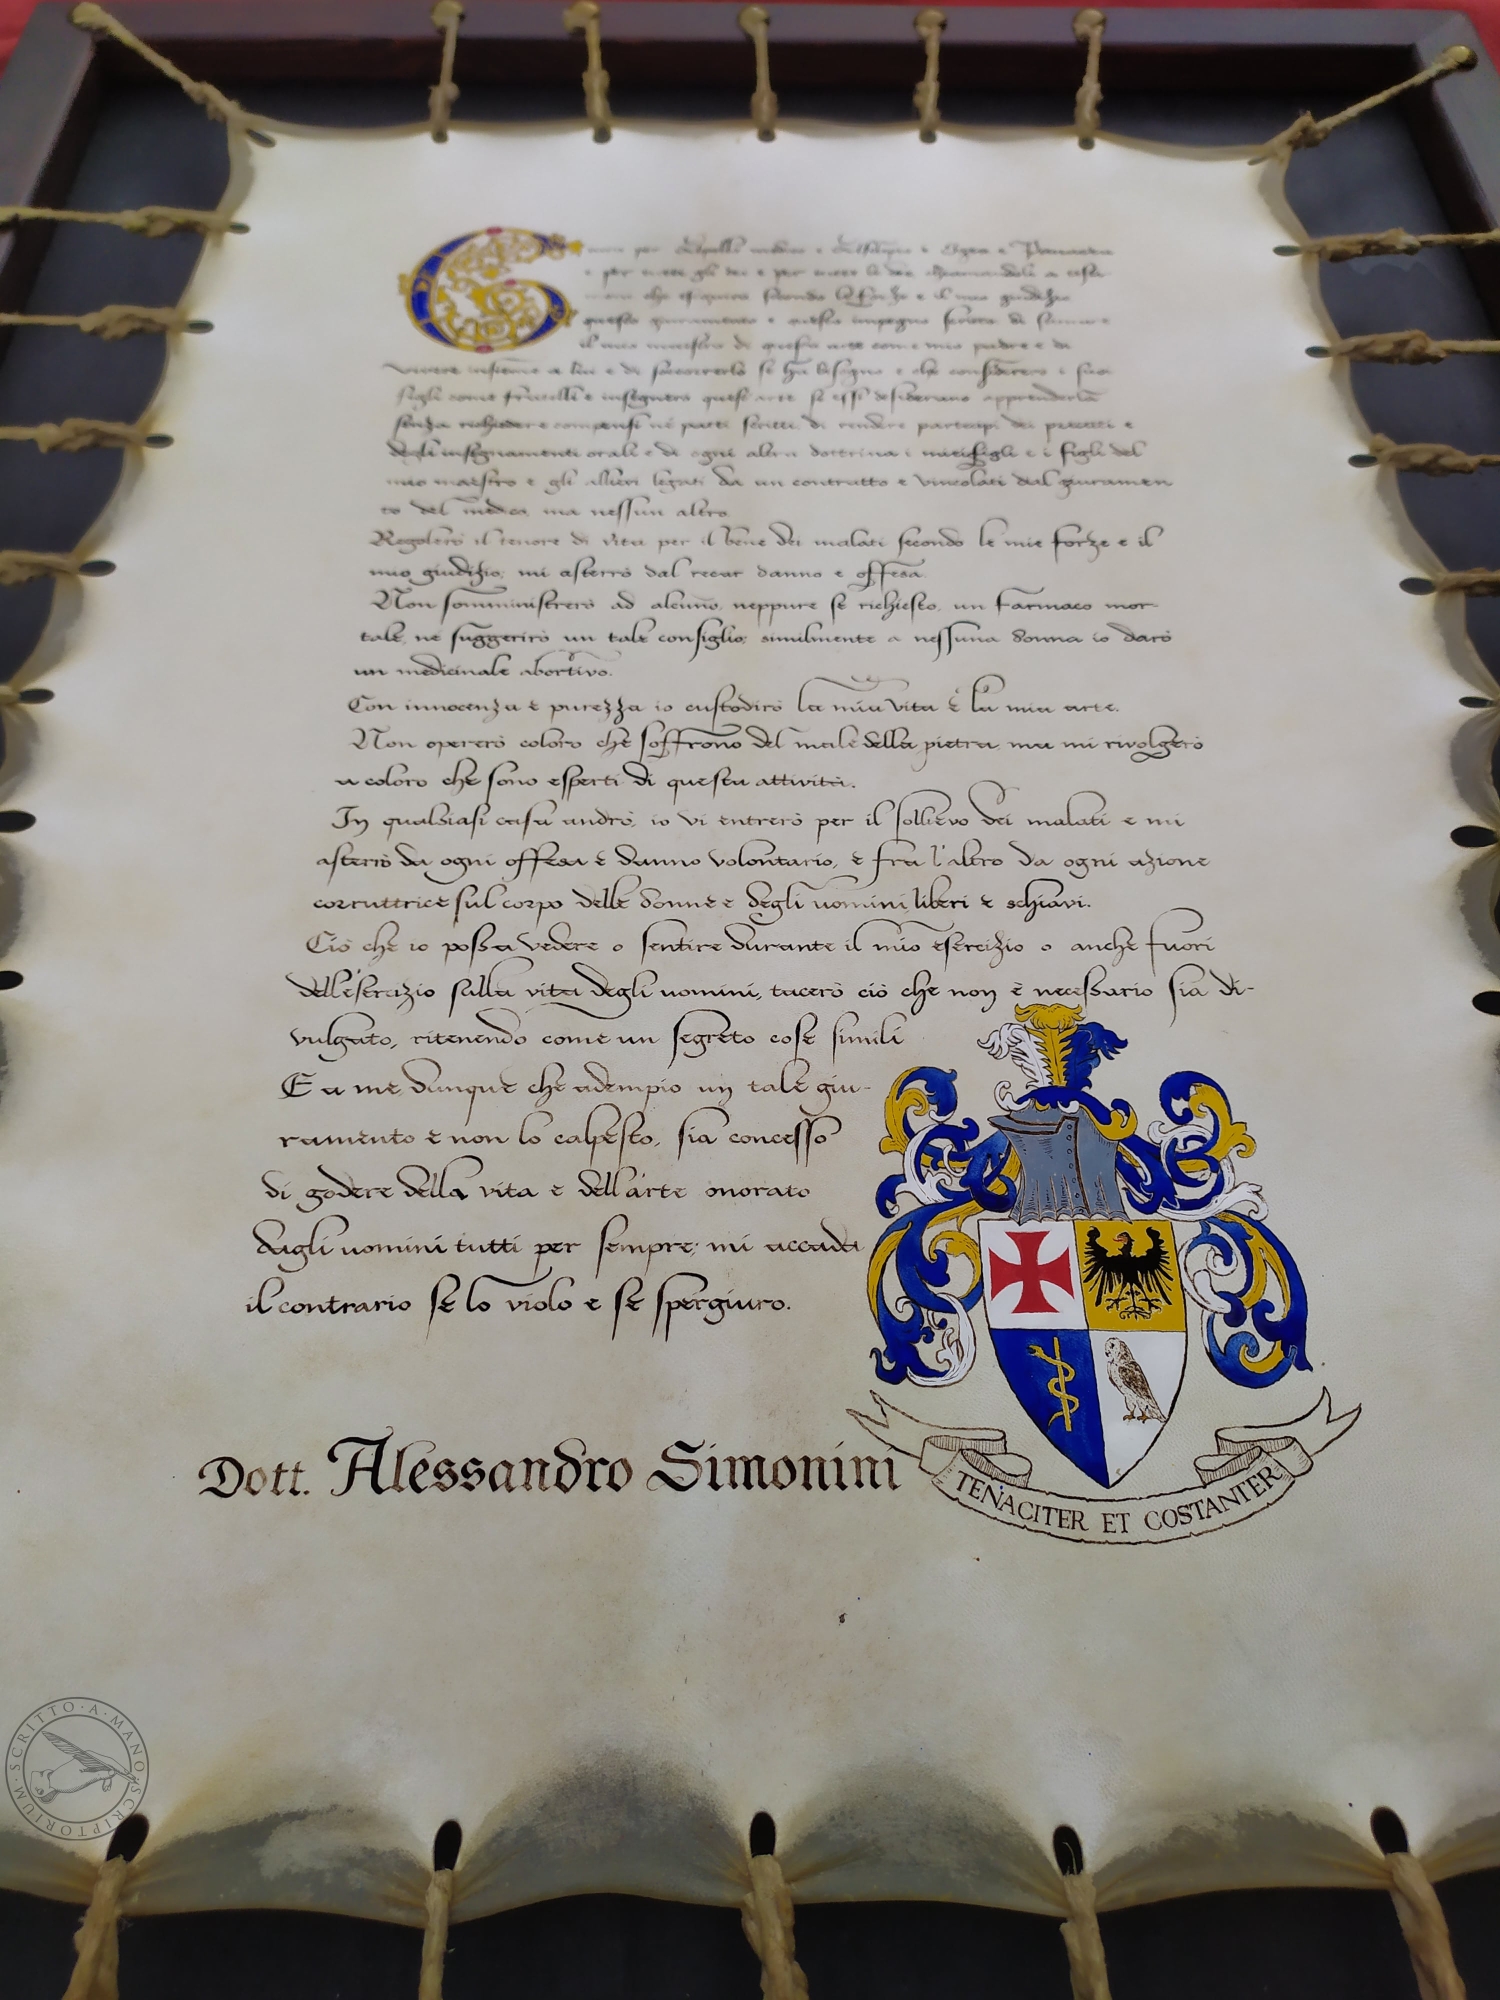 Giuro per Apollo medico e Asclepio e Igea e Panacea
e per tutti gli dei e per tutte le dee, chiamandoli a testi-
moni che eseguirò secondo le forze e il mio giudizio
questo giuramento e questo impegno scritto: di stimare
il mio maestro di questa arte come mio padre e di
vivere insieme a lui e di soccorrerlo se ha bisogno e che considererò i suoi
figli come fratelli e insegnerò quest'arte se essi desiderano apprenderla
senza richiedere compensi né patti scritti, di rendere partecipi dei precetti e
degli insegnamenti orali e di ogni altra dottrina i miei figli e i figli del
mio maestro e gli allievi legati da un contratto e vincolati dal giuramen
to del medico, ma nessun altro.
Regolerò il tenore di vita per il bene dei malati secondo le mie forze e il
mio giudizio; mi asterrò dal recar danno e offesa.
Non somministrerò ad alcuno, neppure se richiesto, un farmaco mor-
tale, né suggerirò un tale consiglio; similmente a nessuna donna io darò
un medicinale abortivo.
Con innocenza e purezza io custodirò la mia vita e la mia arte.
Non opererò coloro che soffrono del male della pietra, ma mi rivolgerò
a coloro che sono esperti di questa attività.
In qualsiasi casa andrò, io vi entrerò per il sollievo dei malati e mi
asterrò da ogni offesa e danno volontario, e fra l'altro da ogni azione
corruttrice sul corpo delle donne e degli uomini, liberi e schiavi.
Ciò che io possa vedere o sentire durante il mio esercizio o anche fuori
dell'esercizio sulla vita degli uomini, tacerò ciò che non è necessario sia di-
vulgato, ritenendo come un segreto cose simili
E a me, dunque che adempio un tale giu-
ramento e non lo calpesto, sia concesso
di godere della vita e dell'arte onorato
dagli uomini tutti per sempre; mi accada
il contrario se lo violo e se spergiuro.
Dott. Alessandro Simonini
TENACITER ET COSTANTER
SCRITTO·A·MANO·SCRIPTORIUM